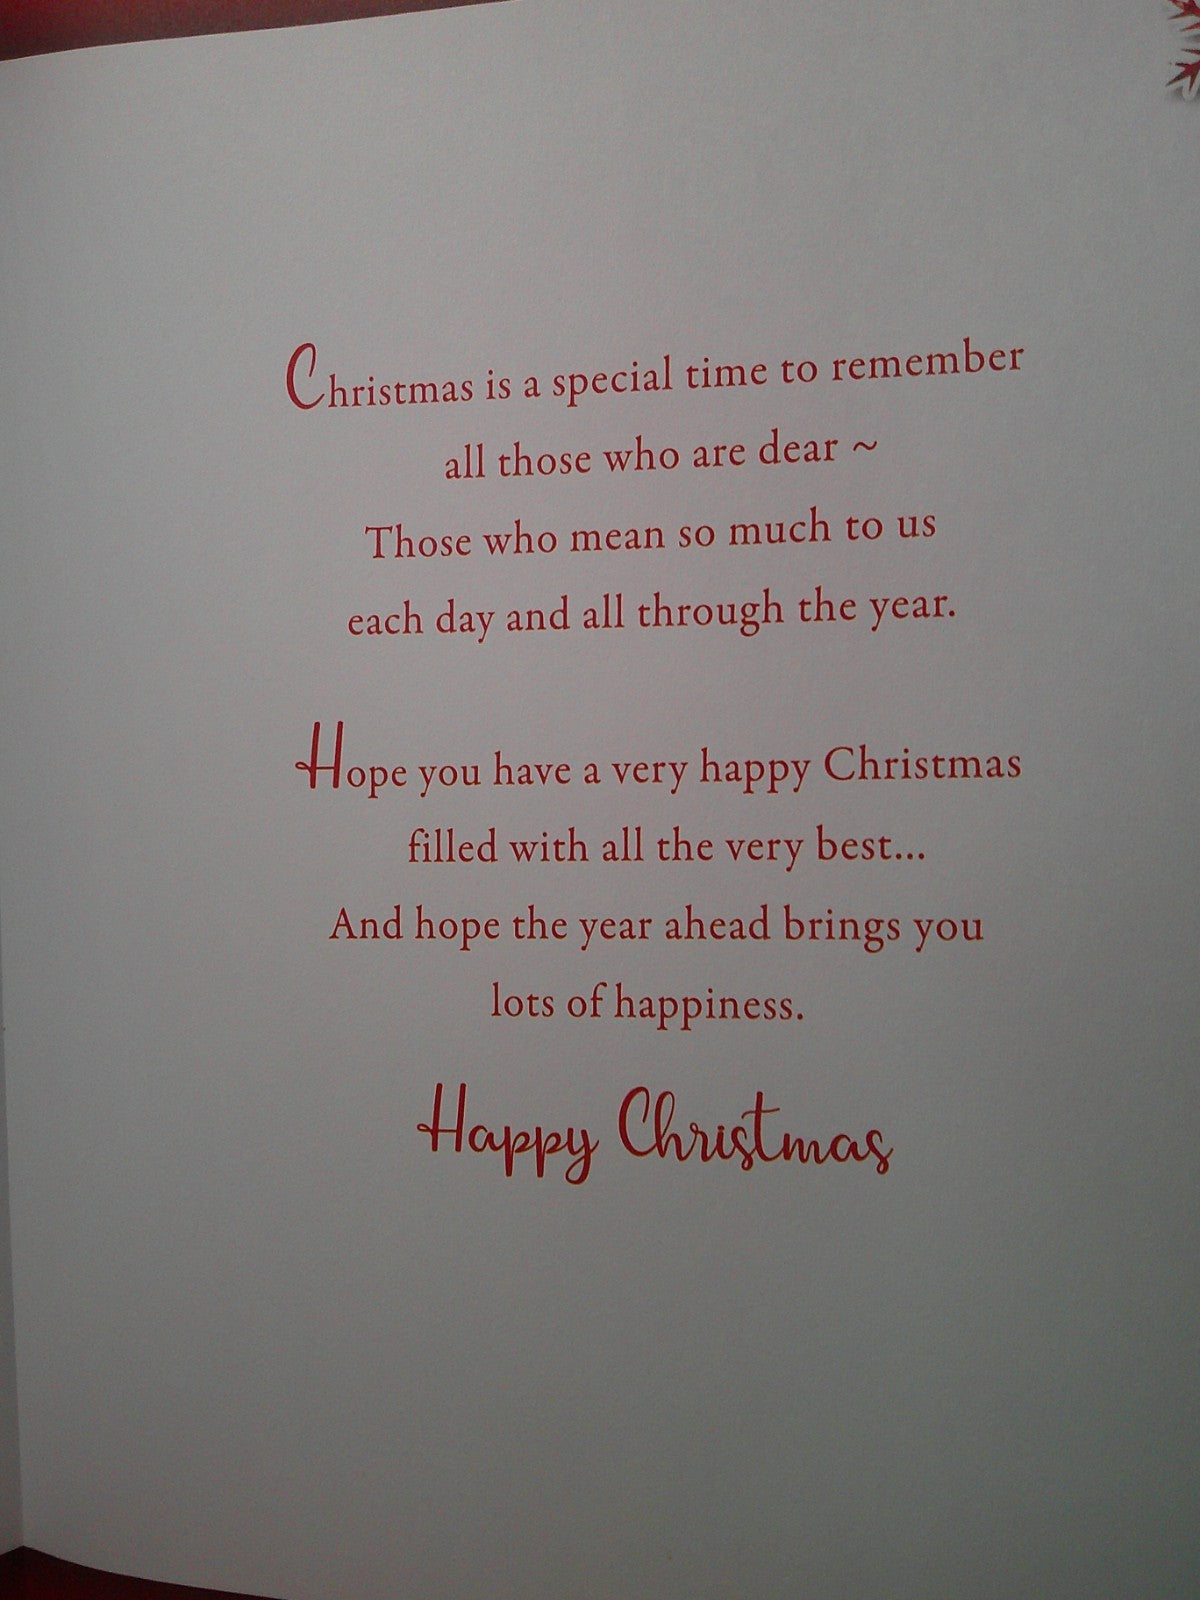 Christmas is a special time to remember
all those who are dear ~
Those who mean so much to us
each day and all through the year.
Hope you have a very happy Christmas
filled with all the very best...
And hope the year ahead brings you
lots of happiness.
Happy Christmas